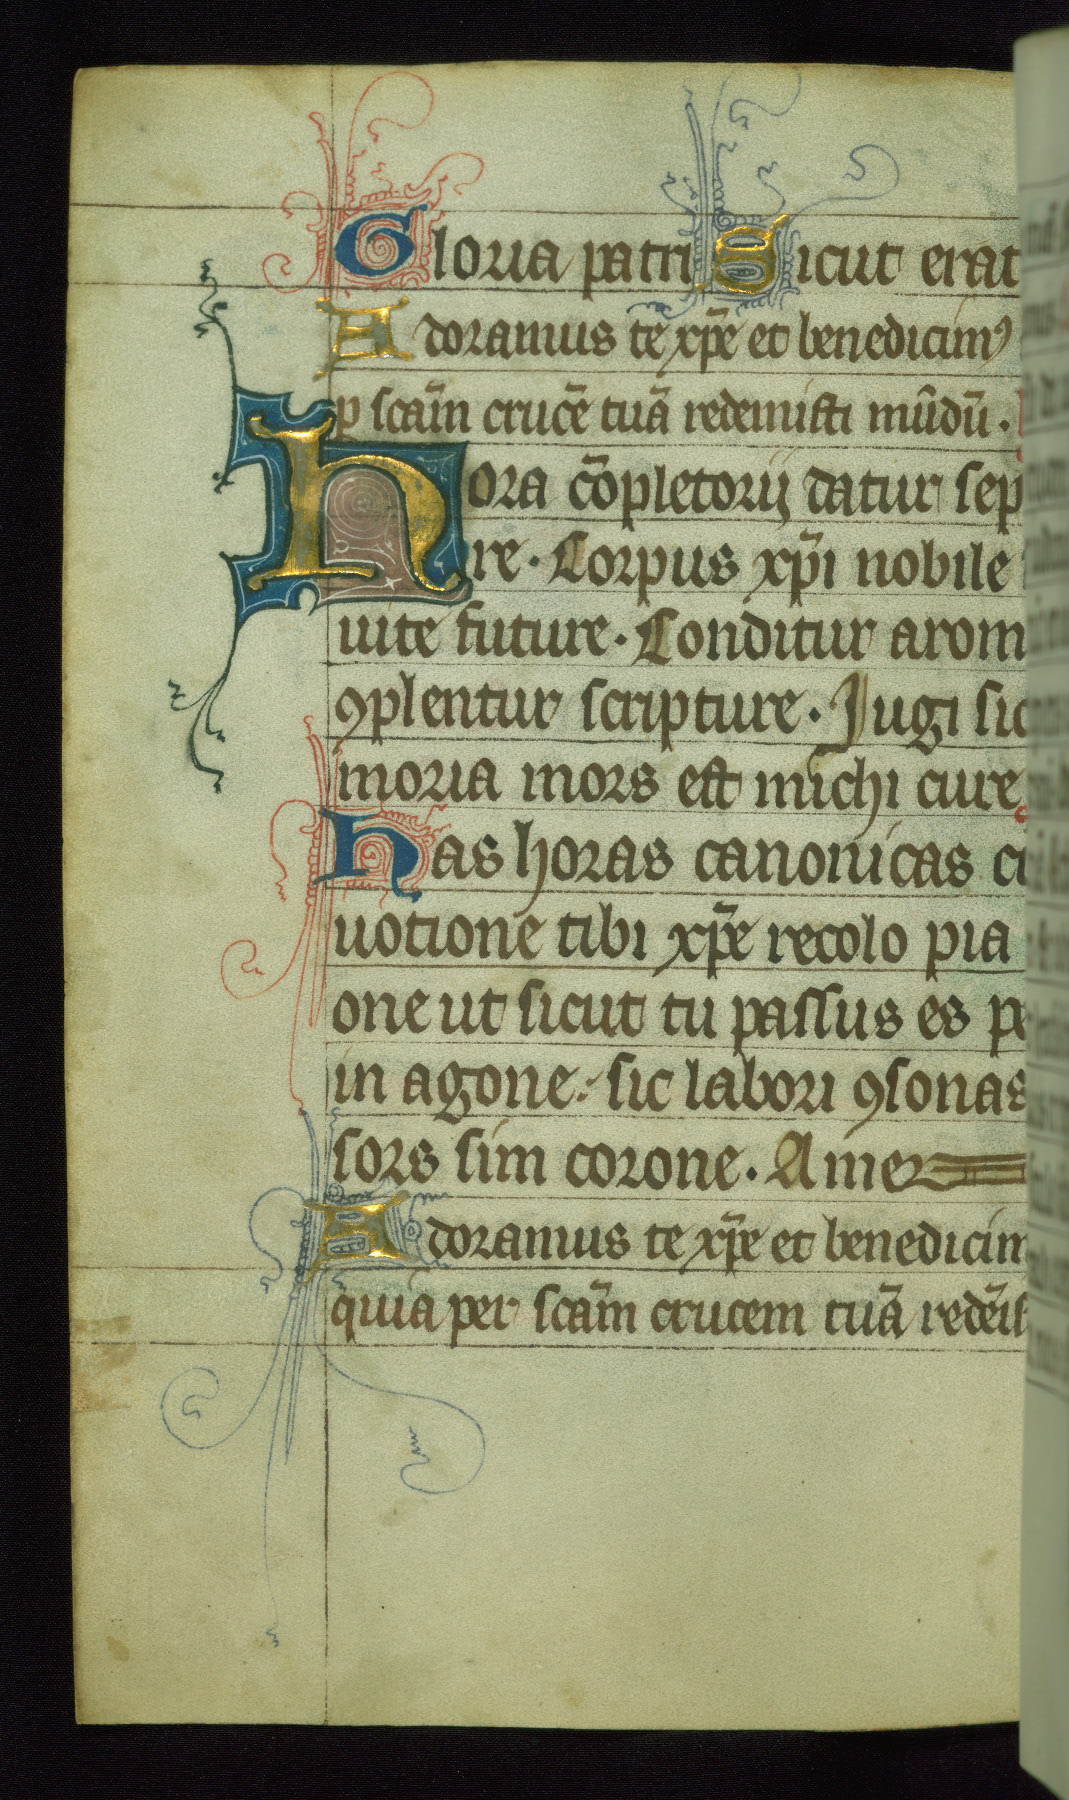 Gloria patri Sicut erat
Adoramus te xp̄e et benedicimꝰ
p scām crucē tuā redemisti mūdū.
Hora cōpletorij datur sep
re. Corpus xp̄i nobile
uite future. Conditur arom
ꝯplentur scripture. Jugi sic
moria mors est michi cure
Has horas canonicas cu
uotione tibi xp̄e recolo pia
one ut sicut tu passus es pe
in agone. sic labori ꝯsonas
sors sim corone. Amen
Adoramus te xp̄e et benedicim
quia per scām crucem tuā redēis